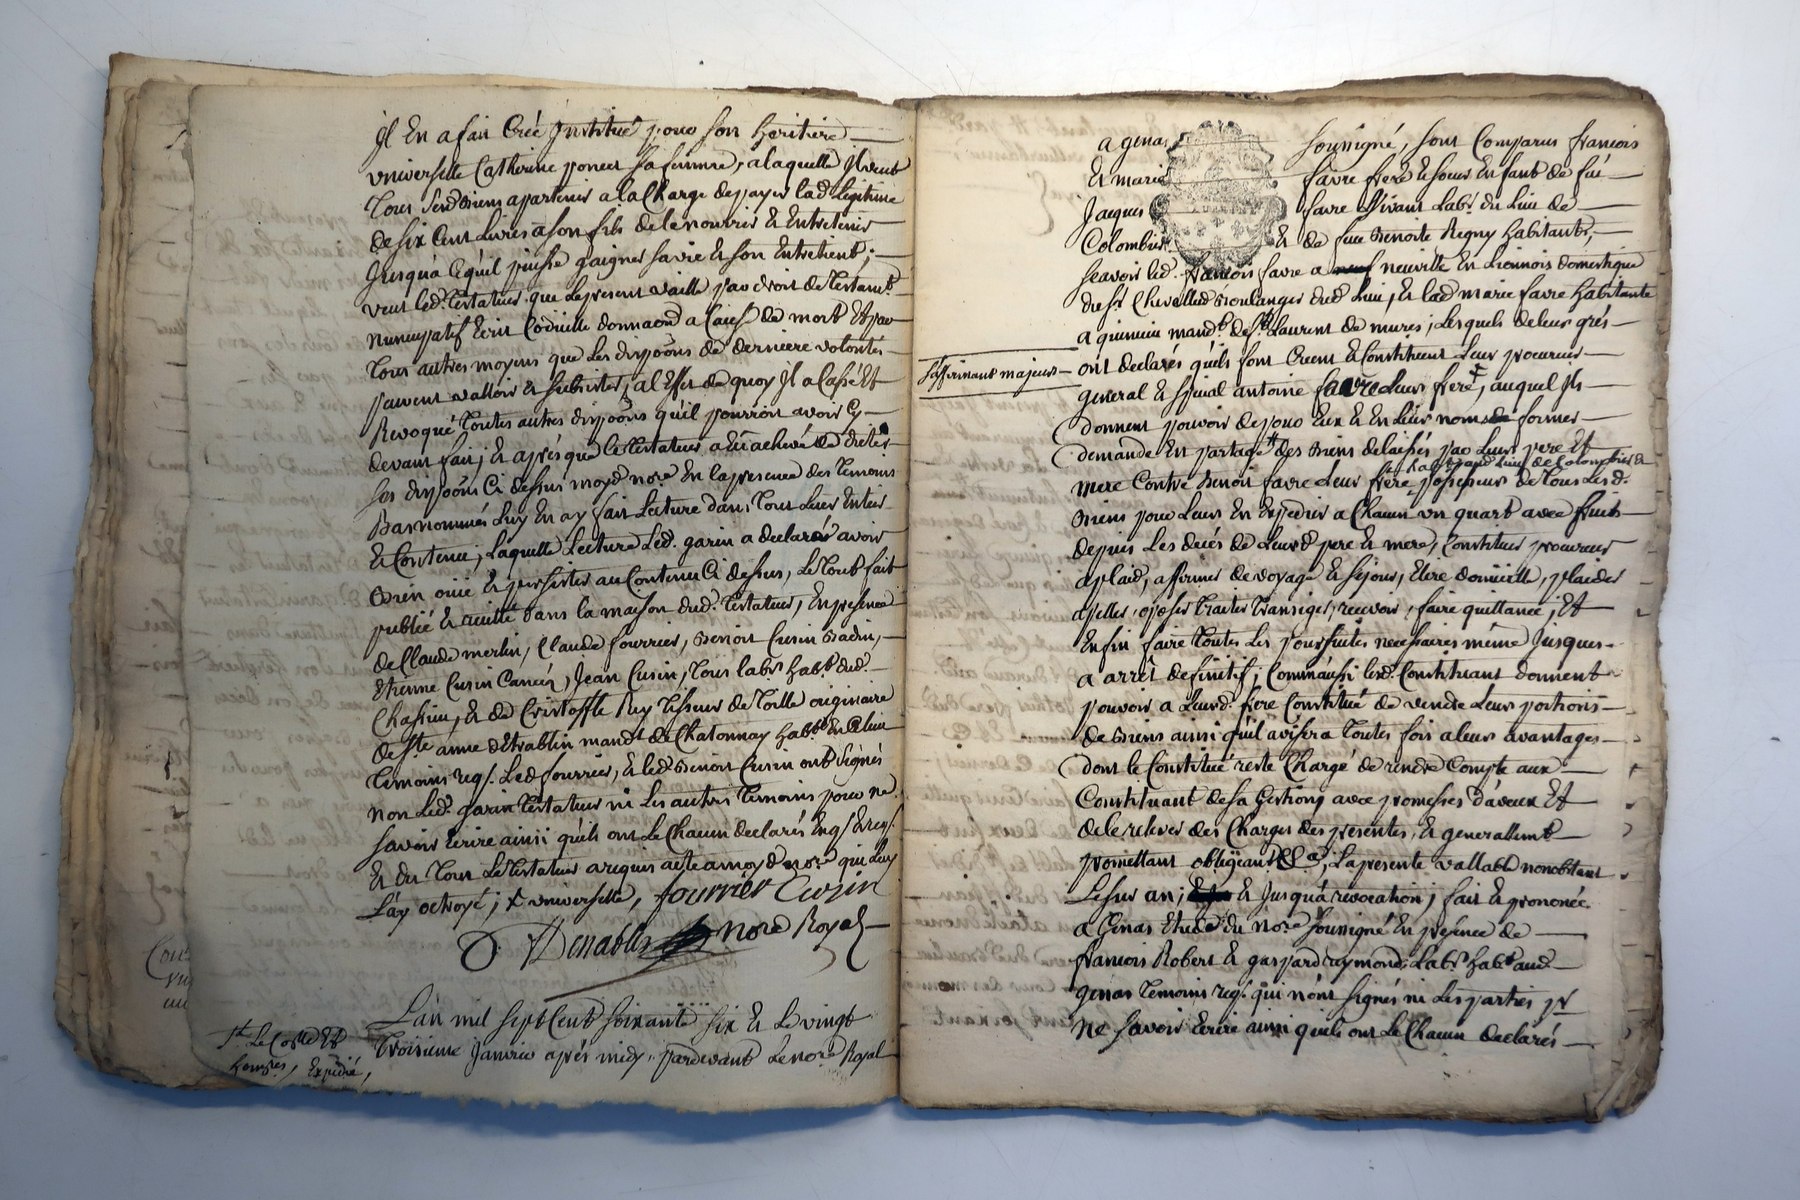 Il En a fait Créé Institué pour son heritiere
universelle Catherine poncet sa femme, a laquelle Il veut
tous sesd biens apartenir a la Charge de payer lad legitime
de six Cent Livres a son fils de le nourrir & Entretenir
Jusqu'a Cequ'il puisse gaigner sa vie & son Entretient;
veut led. testateur que le present vaille par droit de testamt
nuncupatif Ecrit Codicille donnaond a Cause de mort Et par
tous autres moyens que les dispoõns de derniere volontés
peuvent valloir & subsister; al Effet de quoy Il a Cassé Et
Revoqué toutes autres dispoõns qu'il pourroit avoir Cy
devant fait; & aprés que le testateur a Eu achevé de dicter
ses dispoõns Ci dessus moyd nore En la presence des temoins
Bas nommés Luy En ay fait Lecture dans tout leur Entier
& Contenu, laquelle Lecture Led. garin a declaré avoir
Bien ouie & persister au Contenu Ci dessus, Le tout fait
publié & recitté dans la maison dud. testateur, En presence
de Claude merlin, Claude fourrier, Benoit Cusin Badin,
Etienne Cusin, Jean Cusin, tous labrs habts dud.
Chassieu, & de Cristofle Rey tisseur de toille originaire
de Ste anne d'Etrablin mandt de Chatonnay habt
temoins reqs. Led fourrier, & led Benoit Cusin ont signés
non Led. garin testateur ni les autres temoins pour ne
savoir Ecrire ainsi qu'ils ont le Chacun declarés Enqs & reqs.
& du tout Le testateur a requis acte a moyd nore qui luy
l'ay octroyé; x universelle, fourrier Cusin
Denables nore Royal
L'an mil sept Cent soixante six & le vingt
troisieme Janvier aprés midy, pardevant le nore Royal
st. Le Coste Et
Expedié,
a genas soussigné, sont Comparus francois
Et marie favre frere & soeur Enfant de feu
Jacques favre vivant Labr. du lieu de
Colombier & de feue Benoite Regny habitants,
scavoir led. francois favre a neuville En Lionnois domestique
du sr. Chevalled Boulanger dud lieu, & lad marie favre habitante
mandt de St. Laurent de mures; lesquels de leur grés
s'affirmant majeurs
ont declarés qu'ils font Creent & Constituent leur procureur
general & special antoine favre leur frere, auquel Ils
donnent pouvoir de pour Eux & En leur nom former
demande En partage des Biens delaissés par leur pere Et
habt aud. lieu de Colombier &
mere Contre Benoit favre leur frere possesseur de tous lesd.
Biens pour leur En Expedier a Chacun un quart avec fruit
depuis les decés de leurd pere & mere, Constituer procureur
a plaid, affirmer de voyage & sejour, Elire domicille, plaider
apeller, oposer traiter transiger, recevoir, faire quittance; Et
Enfin faire toutes les poursuites necessaires même Jusques
a arrêt definitif; Comm'aussi lesd. Constituant donnent
pouvoir a leurd. frere Constitué de vendre leurs portions
de Biens ainsi qu'il avisera toutes fois a leurs avantages
dont le Constitué reste Chargé de rendre Compte aux
Constituant de sa Gestiong avec promesses d'aveux Et
de le relever des Charges des presentes, & generallemt
promettant obligeant &a, la presente vallable nonobstant
Le sur an; & Jusqu'a revocation; fait & prononcé
a Genas Etude du Nore soussigné En presence de
francois Robert & gaspard reymond, Labrs habts aud.
genas temoins reqs. qui n'ont signés ni les parties pr
ne savoir Ecrire ainsi qu'ils ont le Chacun declarés